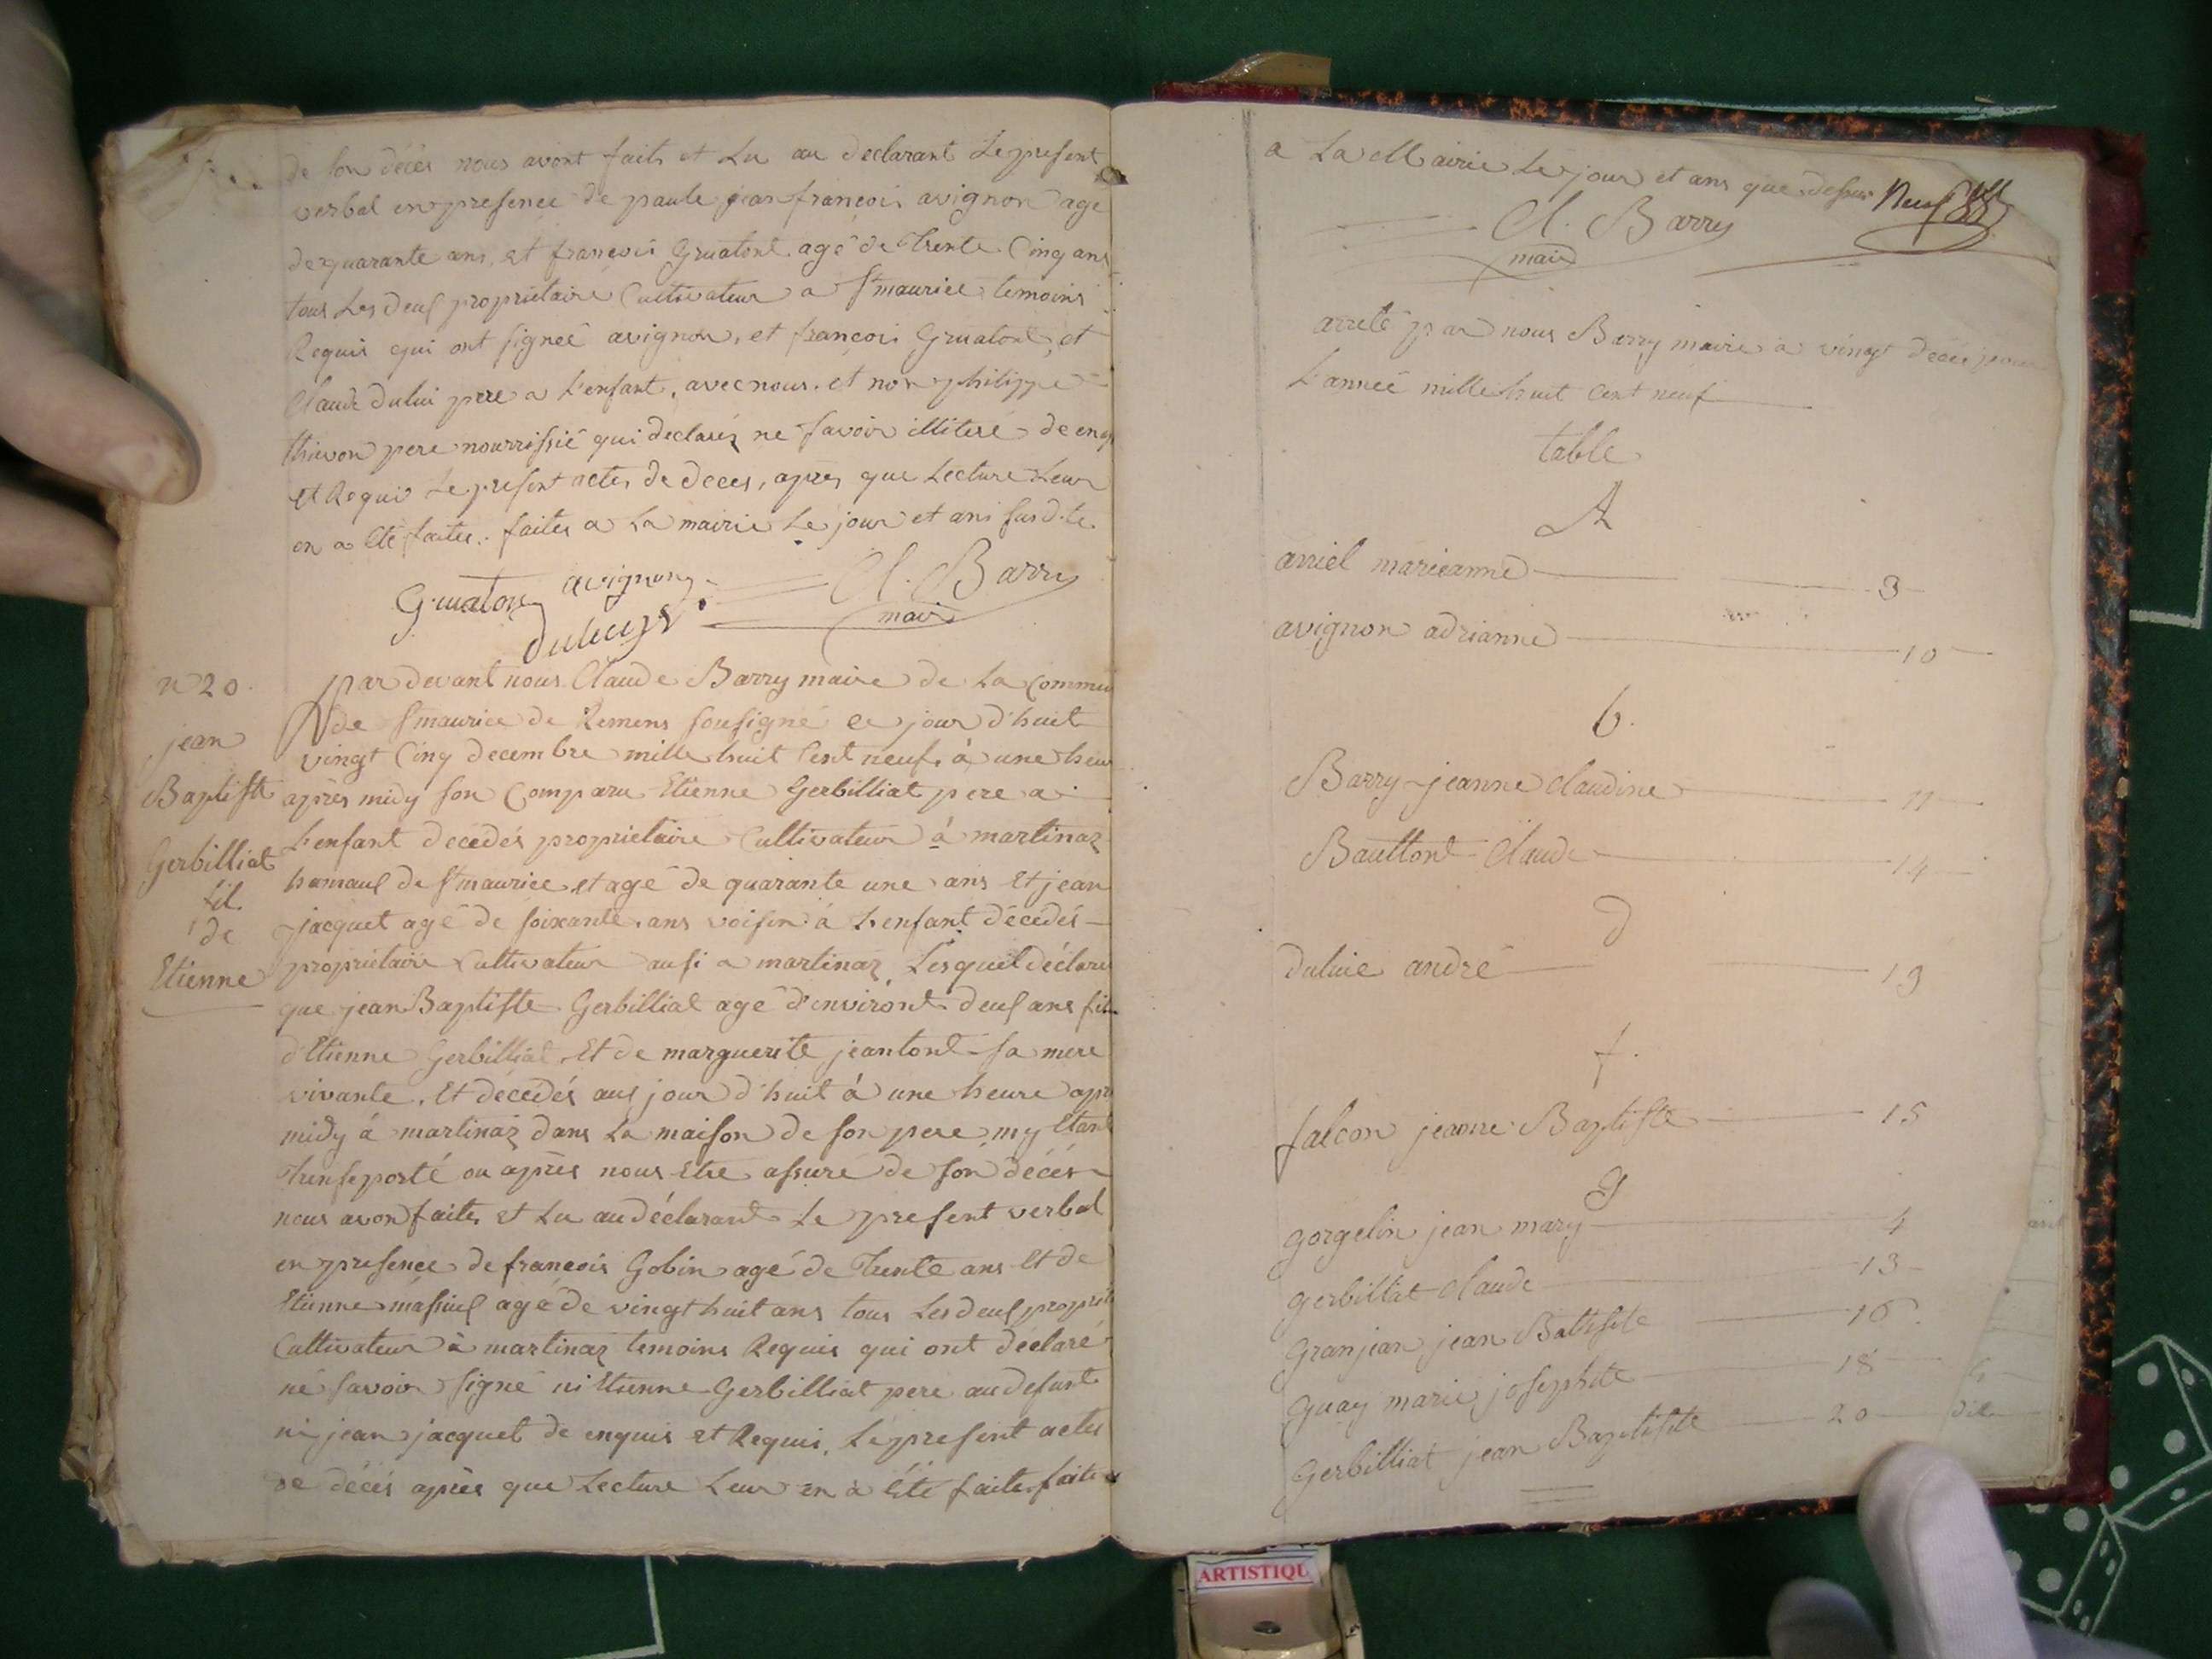 de son décés nous avont faits et Lu au declarant Le present
verbal en presence de paule jean françois avignon agé
de quarante ans, et françois Gruatont agé de Trente Cinq ans
tous Les deux propriétaire Cultivateur a St maurice temoins
Requis qui ont signée avignon, et françois Gruatont, et
Claude dului pere a L'enfant, avec nous. et non philippe
thievon pere nourrissié qui declarés ne savoir illiteré de enq
et Requis Le present actes de deces, apres que Lecture Leur
en a Eté faites. faites a La mairie Le jour et ans susd. te
Gruaton avignon Cl. Barry
maire
n° 20.
jean
Baptiste
Gerbilliat
fil
de
Etienne
par devant nous Claude Barry maire de La Commu
de St maurice de Remens sousigné ce jour d'huit
vingt Cinq decembre mille huit Cent neuf, à une heur
après midy son Comparu Etienne Gerbilliat pere a
L'enfant decedés proprietaire Cultivateur à martinaz
hamaux de St maurice, et agé de quarante une ans Et jean
jacquet agé de soixante ans voisin à L'enfant décédés
proprietaire Cultivateur ausi a martinaz, Lesquel déclare
que jean Baptiste Gerbilliat agé d'environt deux ans fils
d'Etienne Gerbilliat, Et de marguerite jeantont sa mere
vivante, Et décédés aux jour d'huit à une heure apr
midy à martinaz dans La maison de son pere, my Etant
Trensporté ou après nous Etre assuré de son décés
nous avon faites et Lu au déclarant Le present verbal
en presence de françois Gobin agé de Trente ans Et de
Etienne massiux agé de vingt huit ans tous Les deux propriét
Cultivateur à martinaz temoins Requis qui ont déclaré
né savoir signé ni Etienne Gerbilliat pere au defunt
ni jean jacquet de enquis et Requis, Le present actes
de décés après que Lecture Leur en à Eté faites faites
a La Mairie Le jour et ans que dessus
Cl. Barry
maire
arreté par nous Barry maire a vingt décés pour
L'anneé mille huit Cent neuf
table
A
arriel marieanne 3
avignon adrianne 10
b.
Barry jeanne Claudine 11
Baulttont Claude 14
d
duluie andré 19
f.
falcon jeanne Baptiste 15
g
gorgelin jean mary 4
gerbillat Claude 13
granjean jean Battiste 16
guay marie josephte 18
gerbilliat jean Baptiste 20
ARTISTIQU